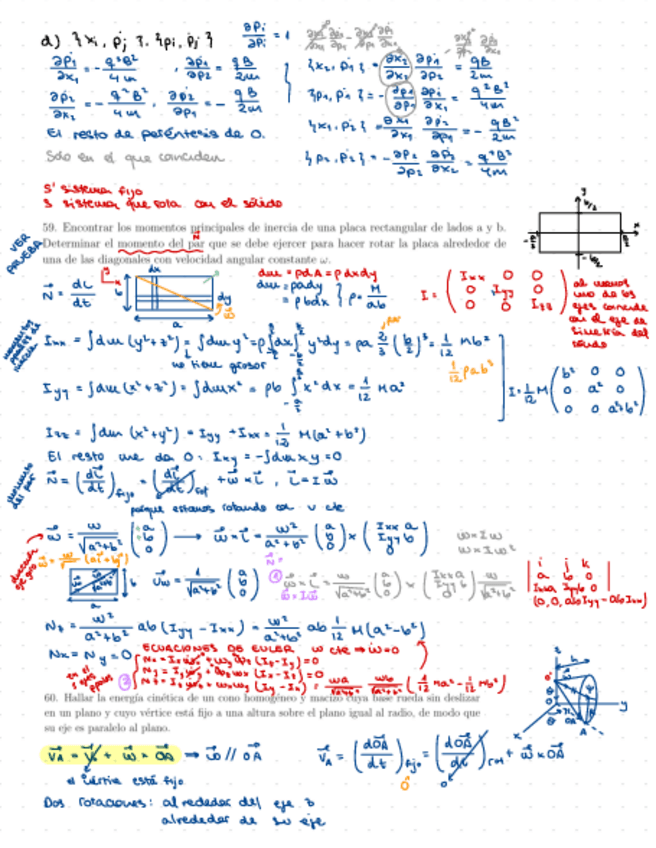 d) { xi, ṗj }, { pi, ṗj }
∂pi/∂pi = 1
∂ṗ1/∂x1 = - q²B²/4m , ∂ṗ1/∂p2 = qB/2m
∂ṗ2/∂x2 = - q²B²/4m , ∂ṗ2/∂p1 = - qB/2m
El resto de paréntesis de 0.
Solo en el que coinciden.
{x2, ṗ1} = ∂x2/∂x2 ∂ṗ1/∂p2 = qB/2m
{p1, ṗ1} = - ∂p1/∂p1 ∂ṗ1/∂x1 = q²B²/4m
{x1, ṗ2} = ∂x1/∂x1 ∂ṗ2/∂p1 = - qB/2m
{p2, ṗ2} = - ∂p2/∂p2 ∂ṗ2/∂x2 = q²B²/4m
S' sistema fijo
S sistema que rota con el sólido
VER PRUEBA
59. Encontrar los momentos principales de inercia de una placa rectangular de lados a y b.
Determinar el momento del par que se debe ejercer para hacer rotar la placa alrededor de
una de las diagonales con velocidad angular constante ω.
N = dL/dt
dx
dy
b
a
dm = ρdA = ρdxdy
dm = ρady
= ρbdx } ρ = M/ab
I = ( Ixx 0 0
0 Iyy 0
0 0 Izz )
al menos
uno de los
ejes coincide
con el eje de
simetría del
sólido
Ixx = ∫dm (y²+z²) = ∫dm y² = ρ∫dx∫y²dy = ρa 2/3 (b/2)³ = 1/12 Mb²
no tiene grosor
1/12 ρab³
Iyy = ∫dm (x²+z²) = ∫dm x² = ρb ∫x²dx = 1/12 Ma²
I = 1/12 M ( b² 0 0
0 a² 0
0 0 a²+b² )
Izz = ∫dm (x²+y²) = Iyy + Ixx = 1/12 M(a²+b²)
El resto me da 0: Ixy = -∫dm xy = 0
N = (dL/dt)fijo = (dL/dt)rot + ω × L , L = Iω
porque estamos rotando con v cte
ω = ω/√(a²+b²) (a b 0) → ω × L = ω²/(a²+b²) (a b 0) × (Ixx a Iyy b)
uω = 1/√(a²+b²) (a b 0)
ω × L = ω/√(a²+b²) (a b 0) × (Ixx a Iyy b) ω/√(a²+b²)
i j k
a b 0
Ixxa Iyyb 0
(0, 0, abIyy - abIxx)
Nz = ω²/(a²+b²) ab (Iyy - Ixx) = ω²/(a²+b²) ab 1/12 M(a²-b²)
Nx = Ny = 0
ECUACIONES DE EULER ω cte ⇒ ω̇ = 0
60. Hallar la energía cinética de un cono homogéneo y macizo cuya base rueda sin deslizar
en un plano y cuyo vértice está fijo a una altura sobre el plano igual al radio, de modo que
su eje es paralelo al plano.
vA = v + ω × OA → ω // OA
el vértice está fijo
vA = (dOA/dt)fijo = (dOA/dt)rot + ω × OA
Dos rotaciones: alrededor del eje 3
alrededor de su eje